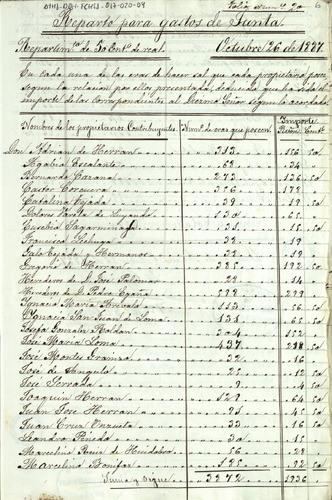 ATHA-DAH-FCHLI-017-020-04
Folio num. 20 6
Reparto para gastos de Junta.
Repartim.to de 50 cent.s de real. Octubre 26 de 1887
En cada una de las eras de hacer sal que cada propietario posee
segun la relacion por ellos presentada, deducida que ha sido el
importe de las correspondientes al segun lo acordado
Nombres de los propietarios Contribuyentes. Num.o de eras que poseen. Importe
Don Adrian de Herran 313 156 50
Agabia Escalante 68 34
Bernarda Cazana 273 136 50
Castor Corcuera 356 178
Catalina Tejada 39 19 50
Dolores Varela de 130 65
Eusebia Sagarminaga 31 15 50
Francisca 38 19
Galo Tejada y Hermanos 38 19
Gregorio de Herran 385 192 50
Heredero de D. José Palomar 28 14
Herederos de D. Pedro Egaña 279
Ignacia Maria 56 50
Ignacia San Juan de Loma 131 65 50
Josefa Gonzalez Roldan 304 152
José Maria Loma 437 218 50
José Montes 32 16
José de Angulo 25 12 50
José Terrada 9 4 50
Joaquin Herran 129 64 50
Juan José Herran 45 50
Juan Cruz 33 16 50
Leandro Pineda 30 15
Marcelino Ruiz de 56 28
Marcelino Bonifaz 185 92 50
Suma y sigue 3872 1936